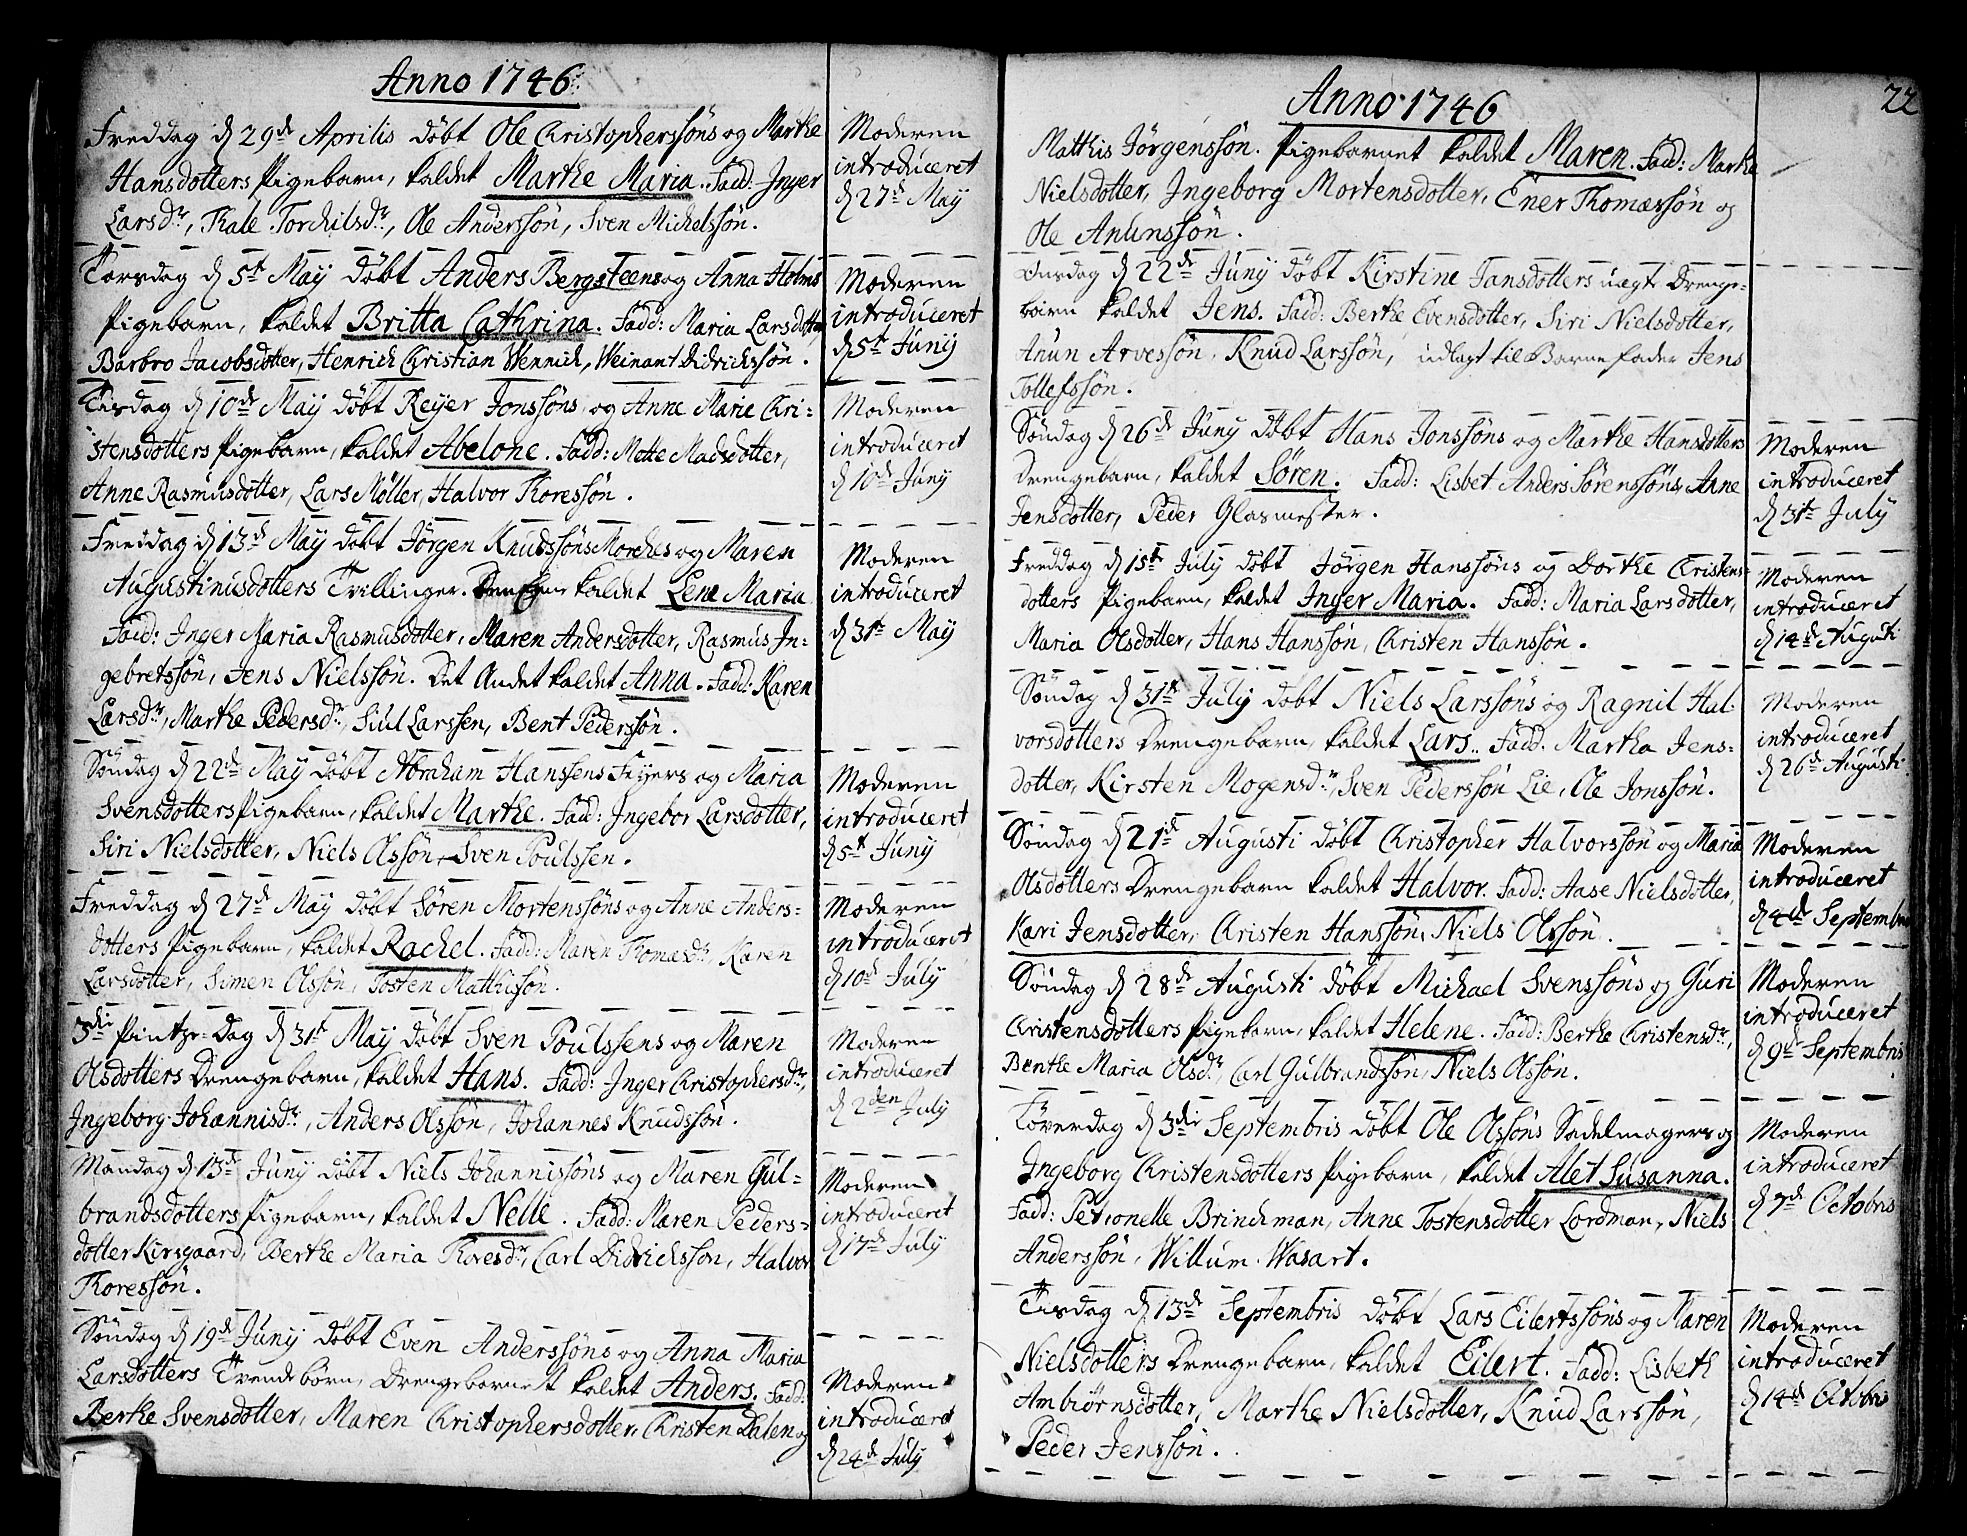 Anno 1746
Freddag d 29de Aprilis døbt Ole Christopherssøns og Marthe
Hansdotters Pigebarn, kaldet Marthe Maria. Fadd: Inger
Larsdr, Kale Torchilsdr, Ole Anderssøn, Sven Michelssøn.
Moderen
introduceret
d 27de May
Torsdag d 5te May døbt Anders Bergsteens og Anna Holms
Pigebarn, kaldet Britta Cathrina. Fadd: Maria Larsdotter
Barbro Jacobsdotter, Henrich Christian Wennich, Weinant Didrichssøn.
Moderen
introduceret
d 5te Juny
Tisdag d 10de May døbt Reyer Jonssøns og Anne Marie Chri-
stensdotters Pigebarn, kaldet Abelone. Fadd: Mette Madsdotter,
Anne Rasmusdotter, Lars Møller, Halvor Thoressøn.
Moderen
introduceret
d 10de Juny
Freidag d 13de May døbt Jørgen Knudssøns Morches og Maren
Augustinusdotters Tvillinger. kaldet Lene Maria
Fadd: Inger Maria Rasmusdotter, Maren Andersdotter, Rasmus In-
gebretssøn, Jens Nielssøn. Det Andet kaldet Anna. Fadd: Karen
Larsdr, Marthe Pedersdr, Siul Larssen, Bent Pederssøn.
Moderen
introduceret
d 31te May
Søndag d 22de May døbt Abraham Hanssens Feyers og Maria
Svensdotters Pigebarn, kaldet Marthe. Fadd: Ingebor Larsdotter,
Siri Nielsdotter, Niels Olssøn, Sven Poulssen.
Moderen
introduceret
d 5te Juny
Freddag d 27de May døbt Søren Mortenssøns og Anne Anders-
dotters Pigebarn, kaldet Rachel. Fadd: Maren Thomasdr, Karen
Larsdotter, Simen Olssøn, Tosten Matthissøn.
Moderen
introduceret
d 10de July
3die Pintze-Dag d 31te May døbt Sven Poulssens og Maren
Olsdotters Drengebarn, kaldet Hans. Fadd: Inger Christophersdr,
Ingeborg Johannisdr, Anders Olssøn, Johannes Knudssøn.
Moderen
introduceret
d 2den July
Mandag d 13de Juny døbt Niels Johannissøns og Maren Gul-
brandsdotters Pigebarn, kaldet Nelle. Fadd: Maren Peders-
dotter Kirsgaard, Berthe Maria Thoresdr, Carl Didrichssøn, Halvor
Thoressøn.
Moderen
introduceret
d 17de July
Søndag d 19de Juny døbt Even Anderssøns og Anna Maria
Larsdotters Tvende børn, Drengebarnet kaldet Anders. Fadd:
Berthe Svensdotter, Maren Christophersdotter, Christen Dalen og
Moderen
introduceret
d 24de July
Anno 1746
22
Matthis Jørgenssøn. Pigebarnet kaldet Maren. Fadd: Marthe
Nielsdotter, Ingeborg Mortensdotter, Ener Thomassøn og
Ole Anunssøn.
Onsdag d 22de Juny døbt Kirstine Jansdotters uægte Drenge-
barn kaldet Jens. Fadd: Berthe Evensdotter, Siri Nielsdotter,
Anun Arvessøn, Knud Larssøn, udlagt til Barne fader Jens
Tollefssøn.
Søndag d 26de Juny døbt Hans Jonssøns og Marthe Hansdotters
Drengebarn, kaldet Søren. Fadd: Lisbet Anders Sørenssøns, Anne
Jensdotter, Peder Glasmester.
Moderen
introduceret
d 31te July
Freddag d 15te July døbt Jørgen Hanssøns og Dorthe Christens-
dotters Pigebarn, kaldet Inger Maria. Fadd: Maria Larsdotter,
Maria Olsdotter, Hans Hanssøn, Christen Hanssøn.
Moderen
introduceret
d 14de Augusti
Søndag d 31te July døbt Niels Larssøns og Ragnil Hal-
vorsdotters Drengebarn, kaldet Lars. Fadd. Martha Jens-
dotter, Kirsten Mogensdr, Sven Pederssøn Lie, Ole Jonssøn.
Moderen
introduceret
d 26de Augusti
Søndag d 21de Augusti døbt Christopher Halvorssøn og Maria
Olsdotters Drengebarn kaldet Halvor. Fadd: Aase Nielsdotter,
Kari Jensdotter, Christen Hanssøn, Niels Olssøn.
Moderen
introduceret
d 4de Septembris
Søndag d 28de Augusti døbt Michael Svenssøns og Guri
Christensdotters Pigebarn, kaldet Helene. Fadd: Berthe Christensdr,
Benthe Maria Olsdr, Carl Gulbrandssøn, Niels Olssøn.
Moderen
introduceret
d 9de Septembris
Løverdag d 3die Septembris døbt Ole Olssøns Sadelmagers og
Ingeborg Christensdotters Pigebarn, kaldet Alet Susanna.
Fadd: Petronelle Brinchman, Anne Tostensdotter Lordman, Niels
Anderssøn, Willum Wasart.
Moderen
introduceret
d 7de Octobris
Tisdag d 13de Septembris døbt Lars Eilertssøns og Maren
Nielsdotters Drengebarn, kaldet Eilert. Fadd: Lisbeth
Ambiørnsdotter, Marthe Nielsdotter, Knud Larssøn,
Peder Jenssøn.
Moderen
introduceret
d 14de Octobris